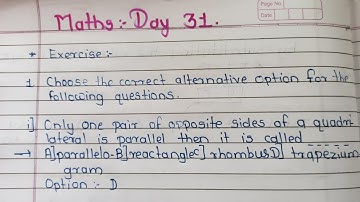 Page No.
Date
Maths:- Day 31.
* Exercise:-
1. Choose the correct alternative option for the
following questions.
i] Only one pair of opposite sides of a quadri
lateral is parallel then it is called -----
→ A]parallelo- B]reactangle C]rhombus D] trapezium
gram
Option :- D